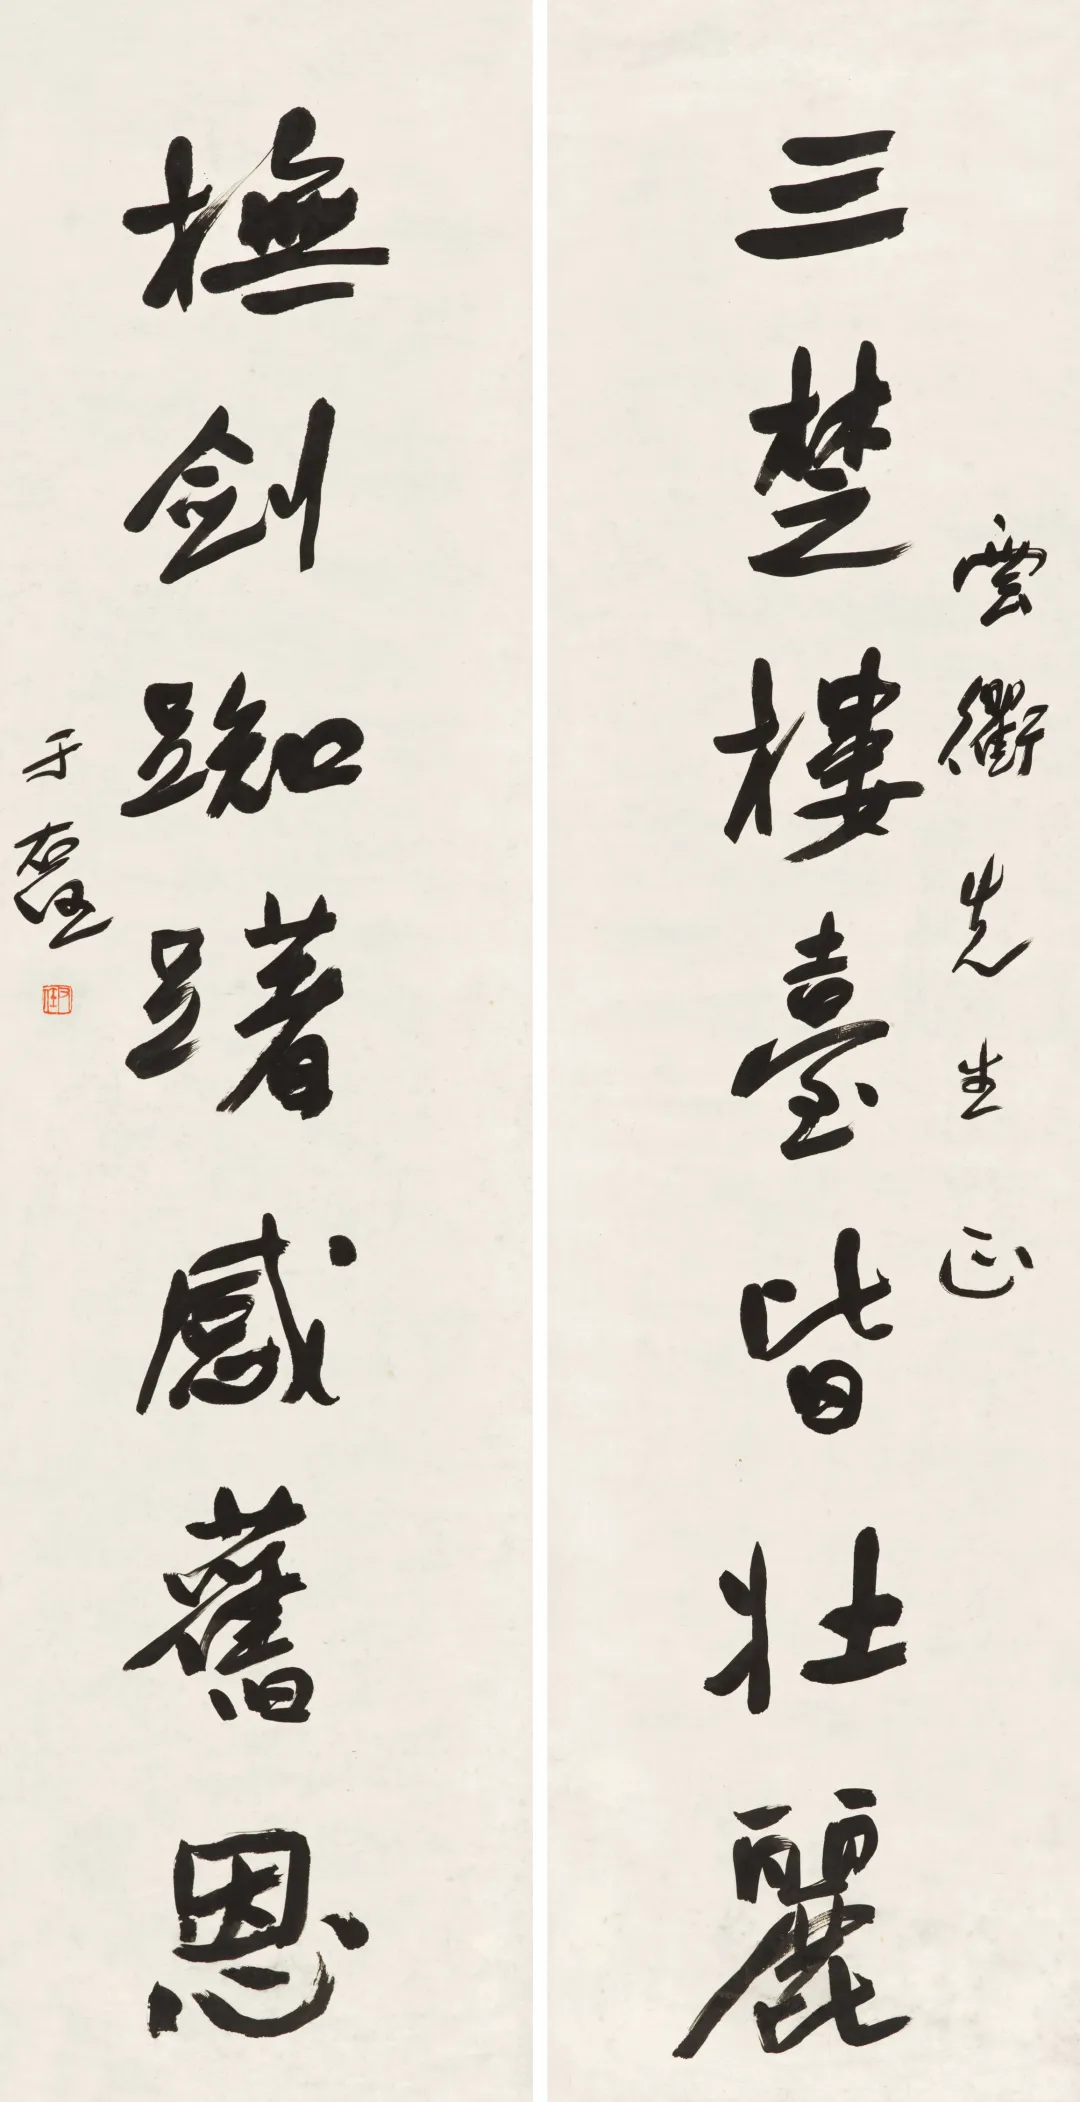 雲衢先生正
三楚樓臺皆壯麗
撫劍踟躇感舊恩
于右任
右任